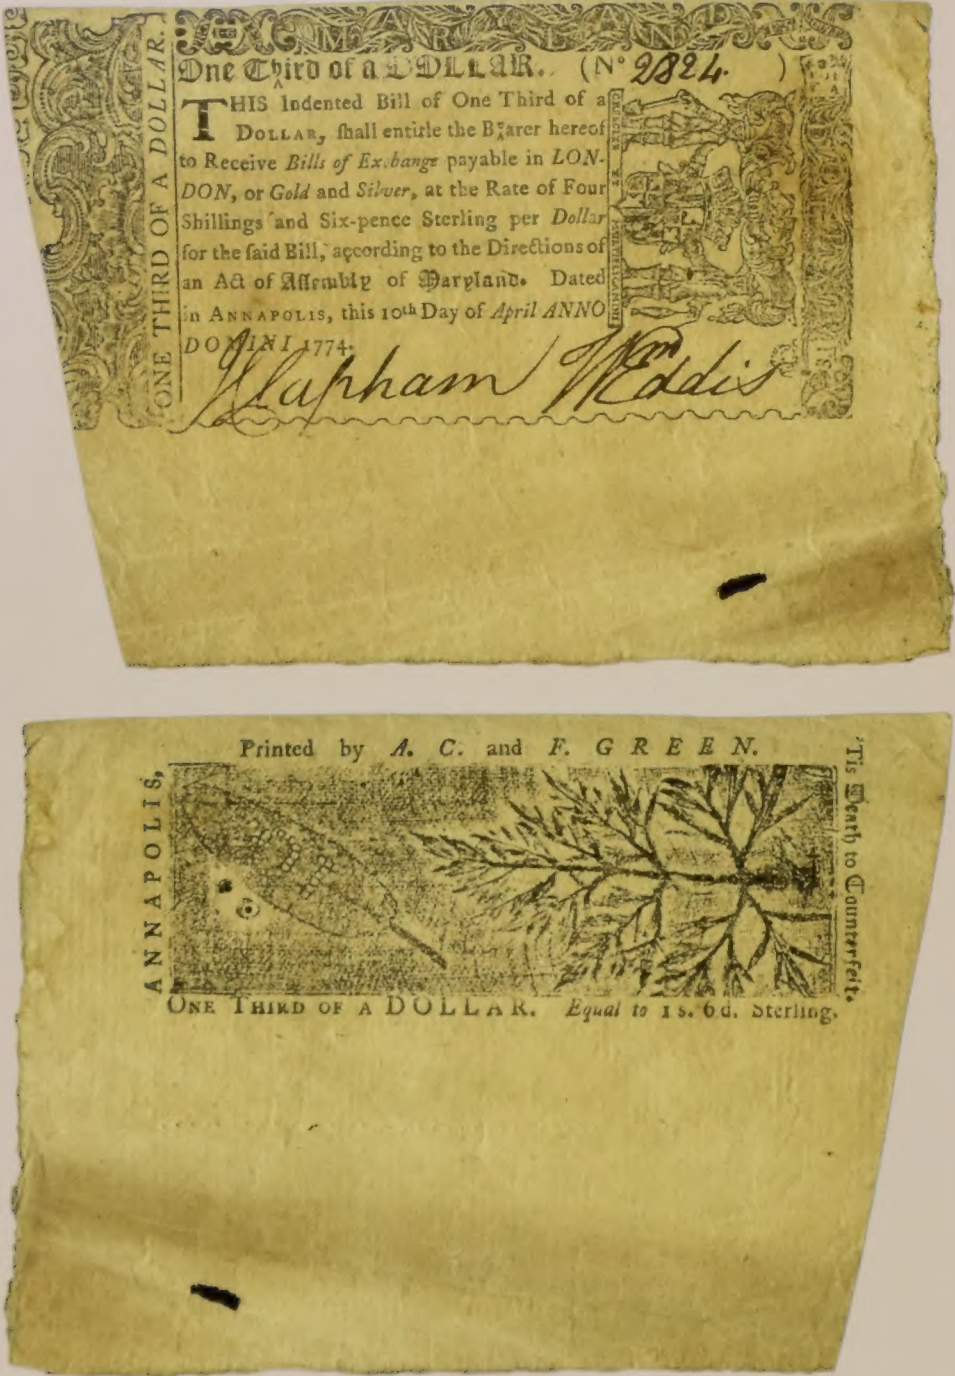 MARYLAND
ONE THIRD OF A DOLLAR.
One Third of a DOLLAR. (No 2824. )
THIS Indented Bill of One Third of a
DOLLAR, ſhall entitle the Bearer hereof
to Receive Bills of Exchange payable in LON-
DON, or Gold and Silver, at the Rate of Four
Shillings and Six-pence Sterling per Dollar
for the ſaid Bill, according to the Directions of
an Act of Aſſembly of Maryland. Dated
in ANNAPOLIS, this 10th Day of April ANNO
DOMINI 1774.
JClapham Wm Eddis
Printed by A. C. and F. GREEN.
ANNAPOLIS,
'Tis Death to Counterfeit.
ONE THIRD OF A DOLLAR. Equal to 1 s. 6 d. Sterling.